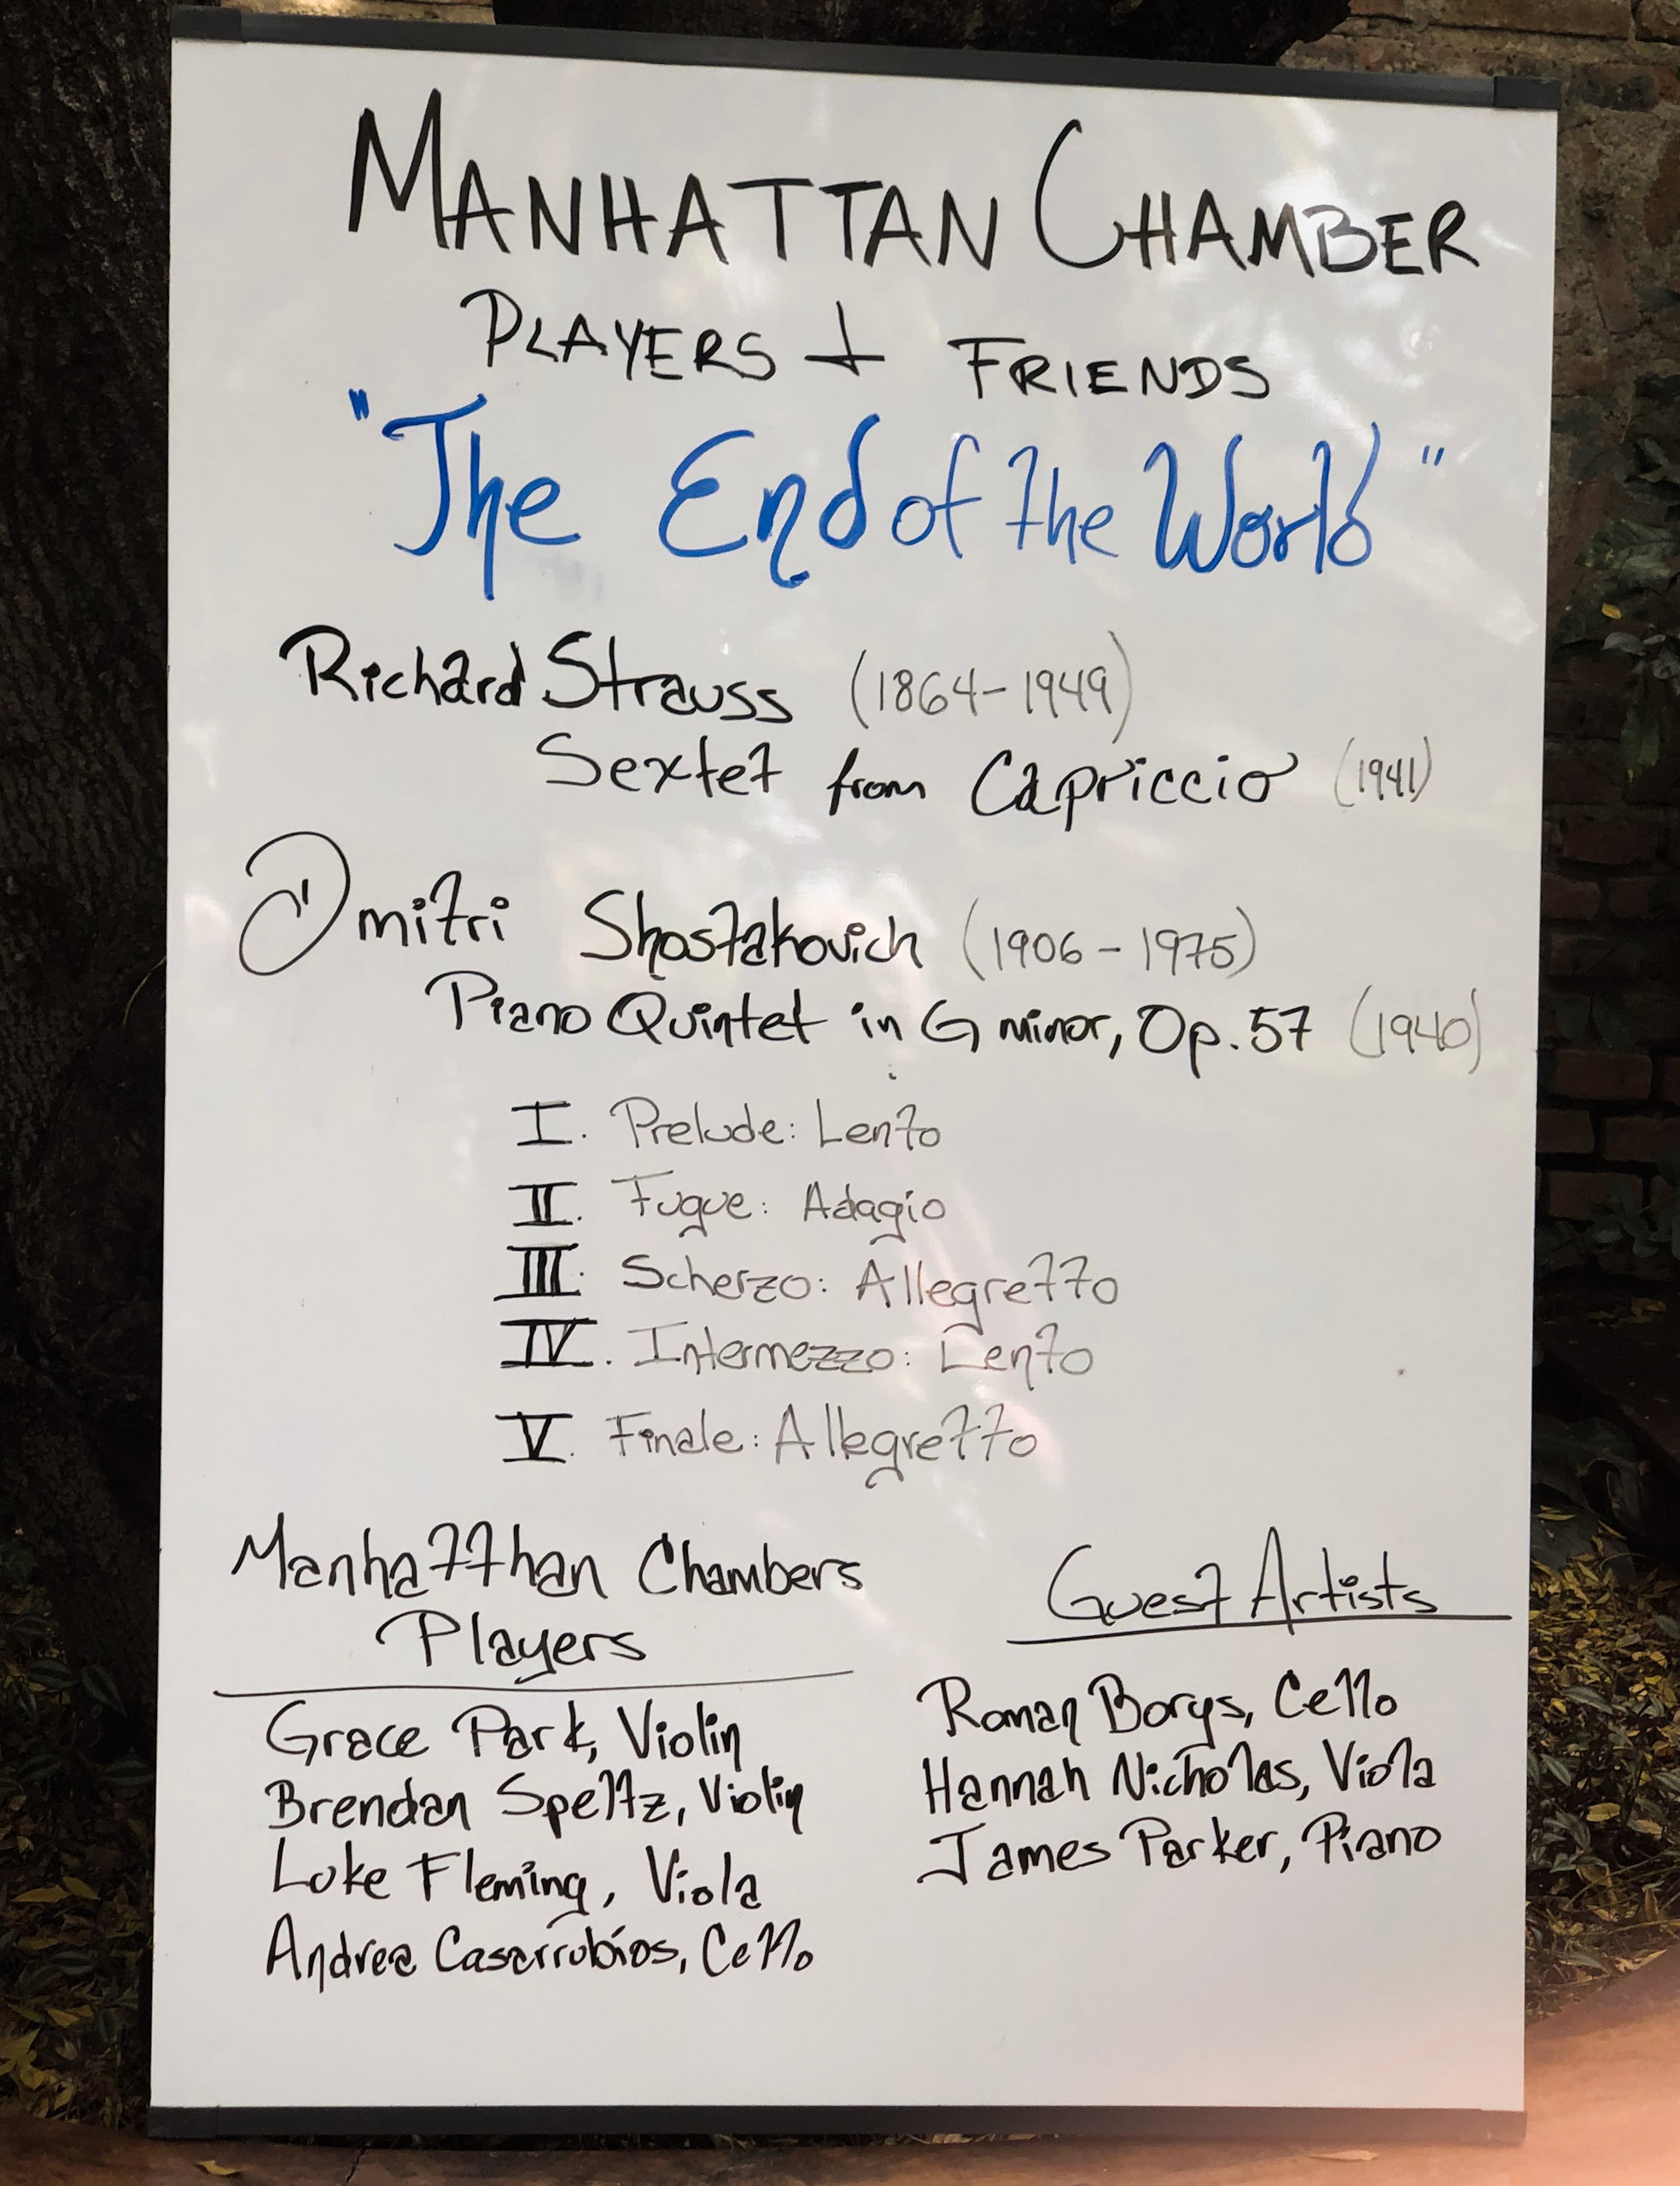 MANHATTAN CHAMBER
PLAYERS + FRIENDS
"The End of the World"
Richard Strauss (1864-1949)
Sextet from Capriccio (1941)
Dmitri Shostakovich (1906-1975)
Piano Quintet in G minor, Op. 57 (1940)
I. Prelude: Lento
II. Fugue: Adagio
III. Scherzo: Allegretto
IV. Intermezzo: Lento
V. Finale: Allegretto
Manhatthan Chambers
Players
Grace Park, Violin
Brendan Speltz, Violin
Luke Fleming, Viola
Andrea Casarrubios, Cello
Guest Artists
Roman Borys, Cello
Hannah Nicholas, Viola
James Parker, Piano